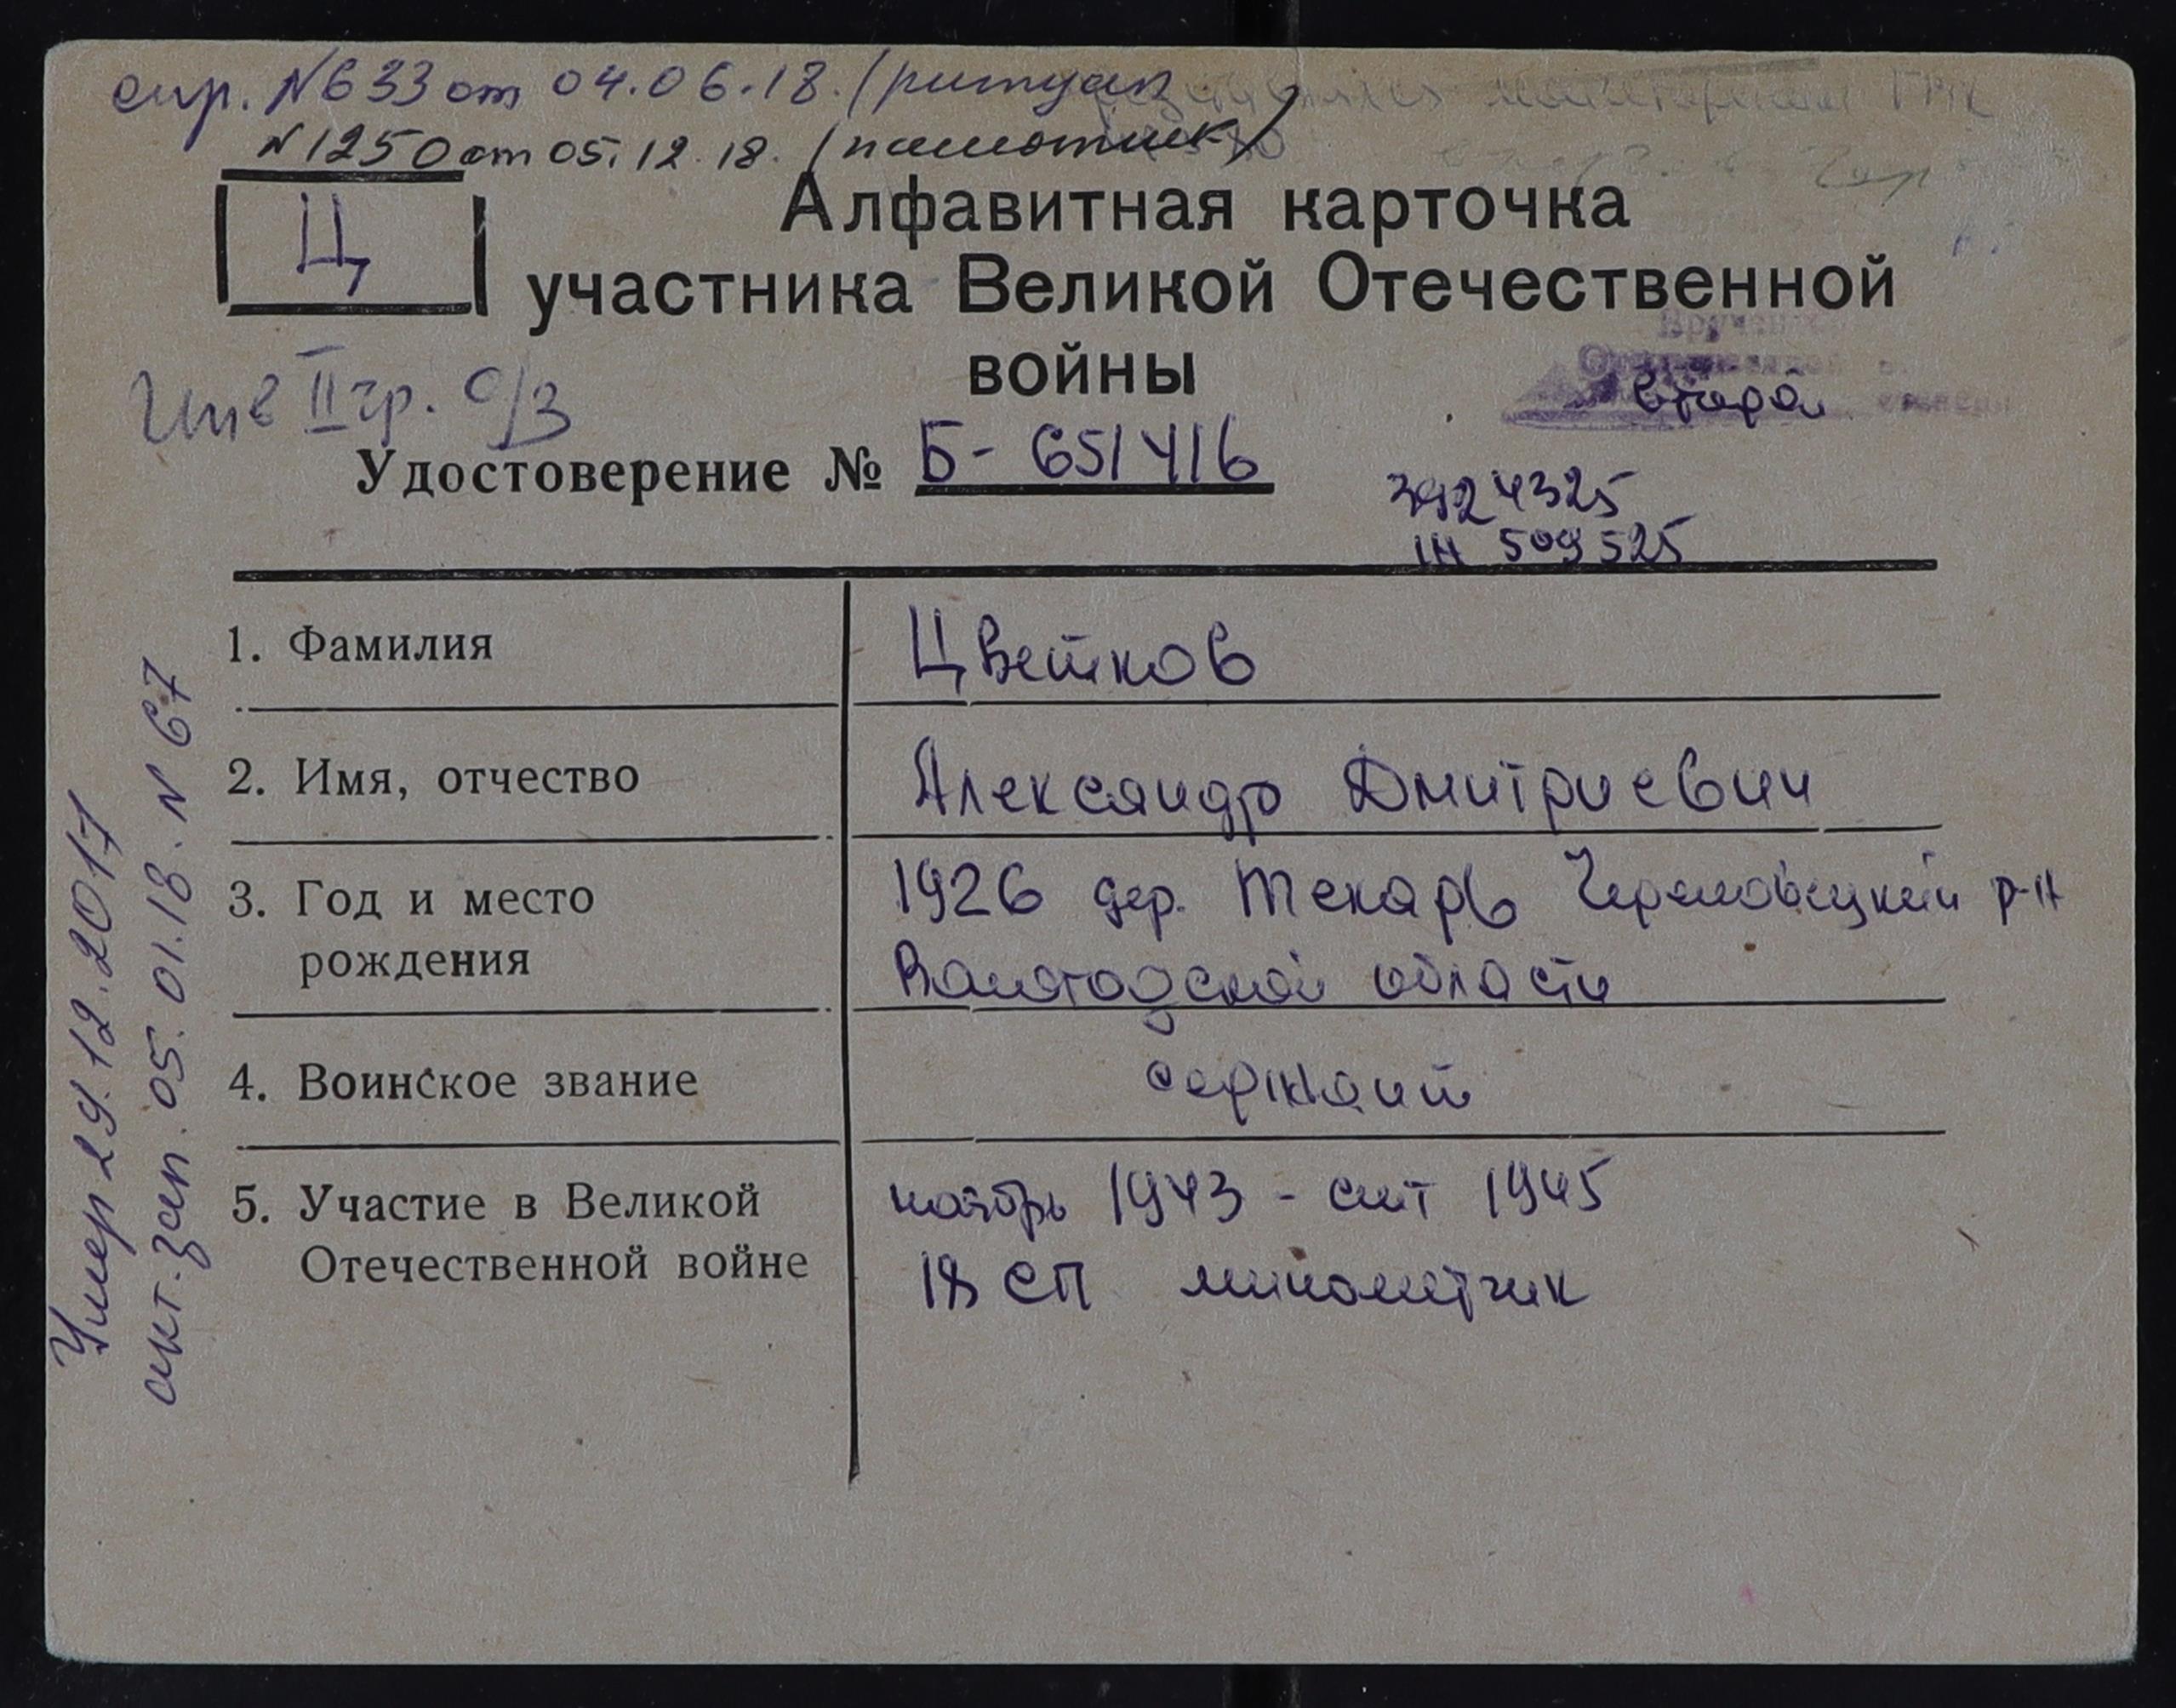 спр. №633 от 04.06.18. (ритуал
№1250 от 05.12.18. (памятник)
Ц
Алфавитная карточка
участника Великой Отечественной
войны
Инв II гр. о/з
второй
Удостоверение № Б- 651416
3924325
1Н 509525
1. Фамилия
Цветков
2. Имя, отчество
Александр Дмитриевич
3. Год и место рождения
1926 дер. Текарь Череповецкий р-н
Вологодской области
4. Воинское звание
сержант
5. Участие в Великой Отечественной войне
ноябрь 1943 - снт 1945
18 СП минометчик
Умер 29.12.2017
акт. зап. 05.01.18. № 67